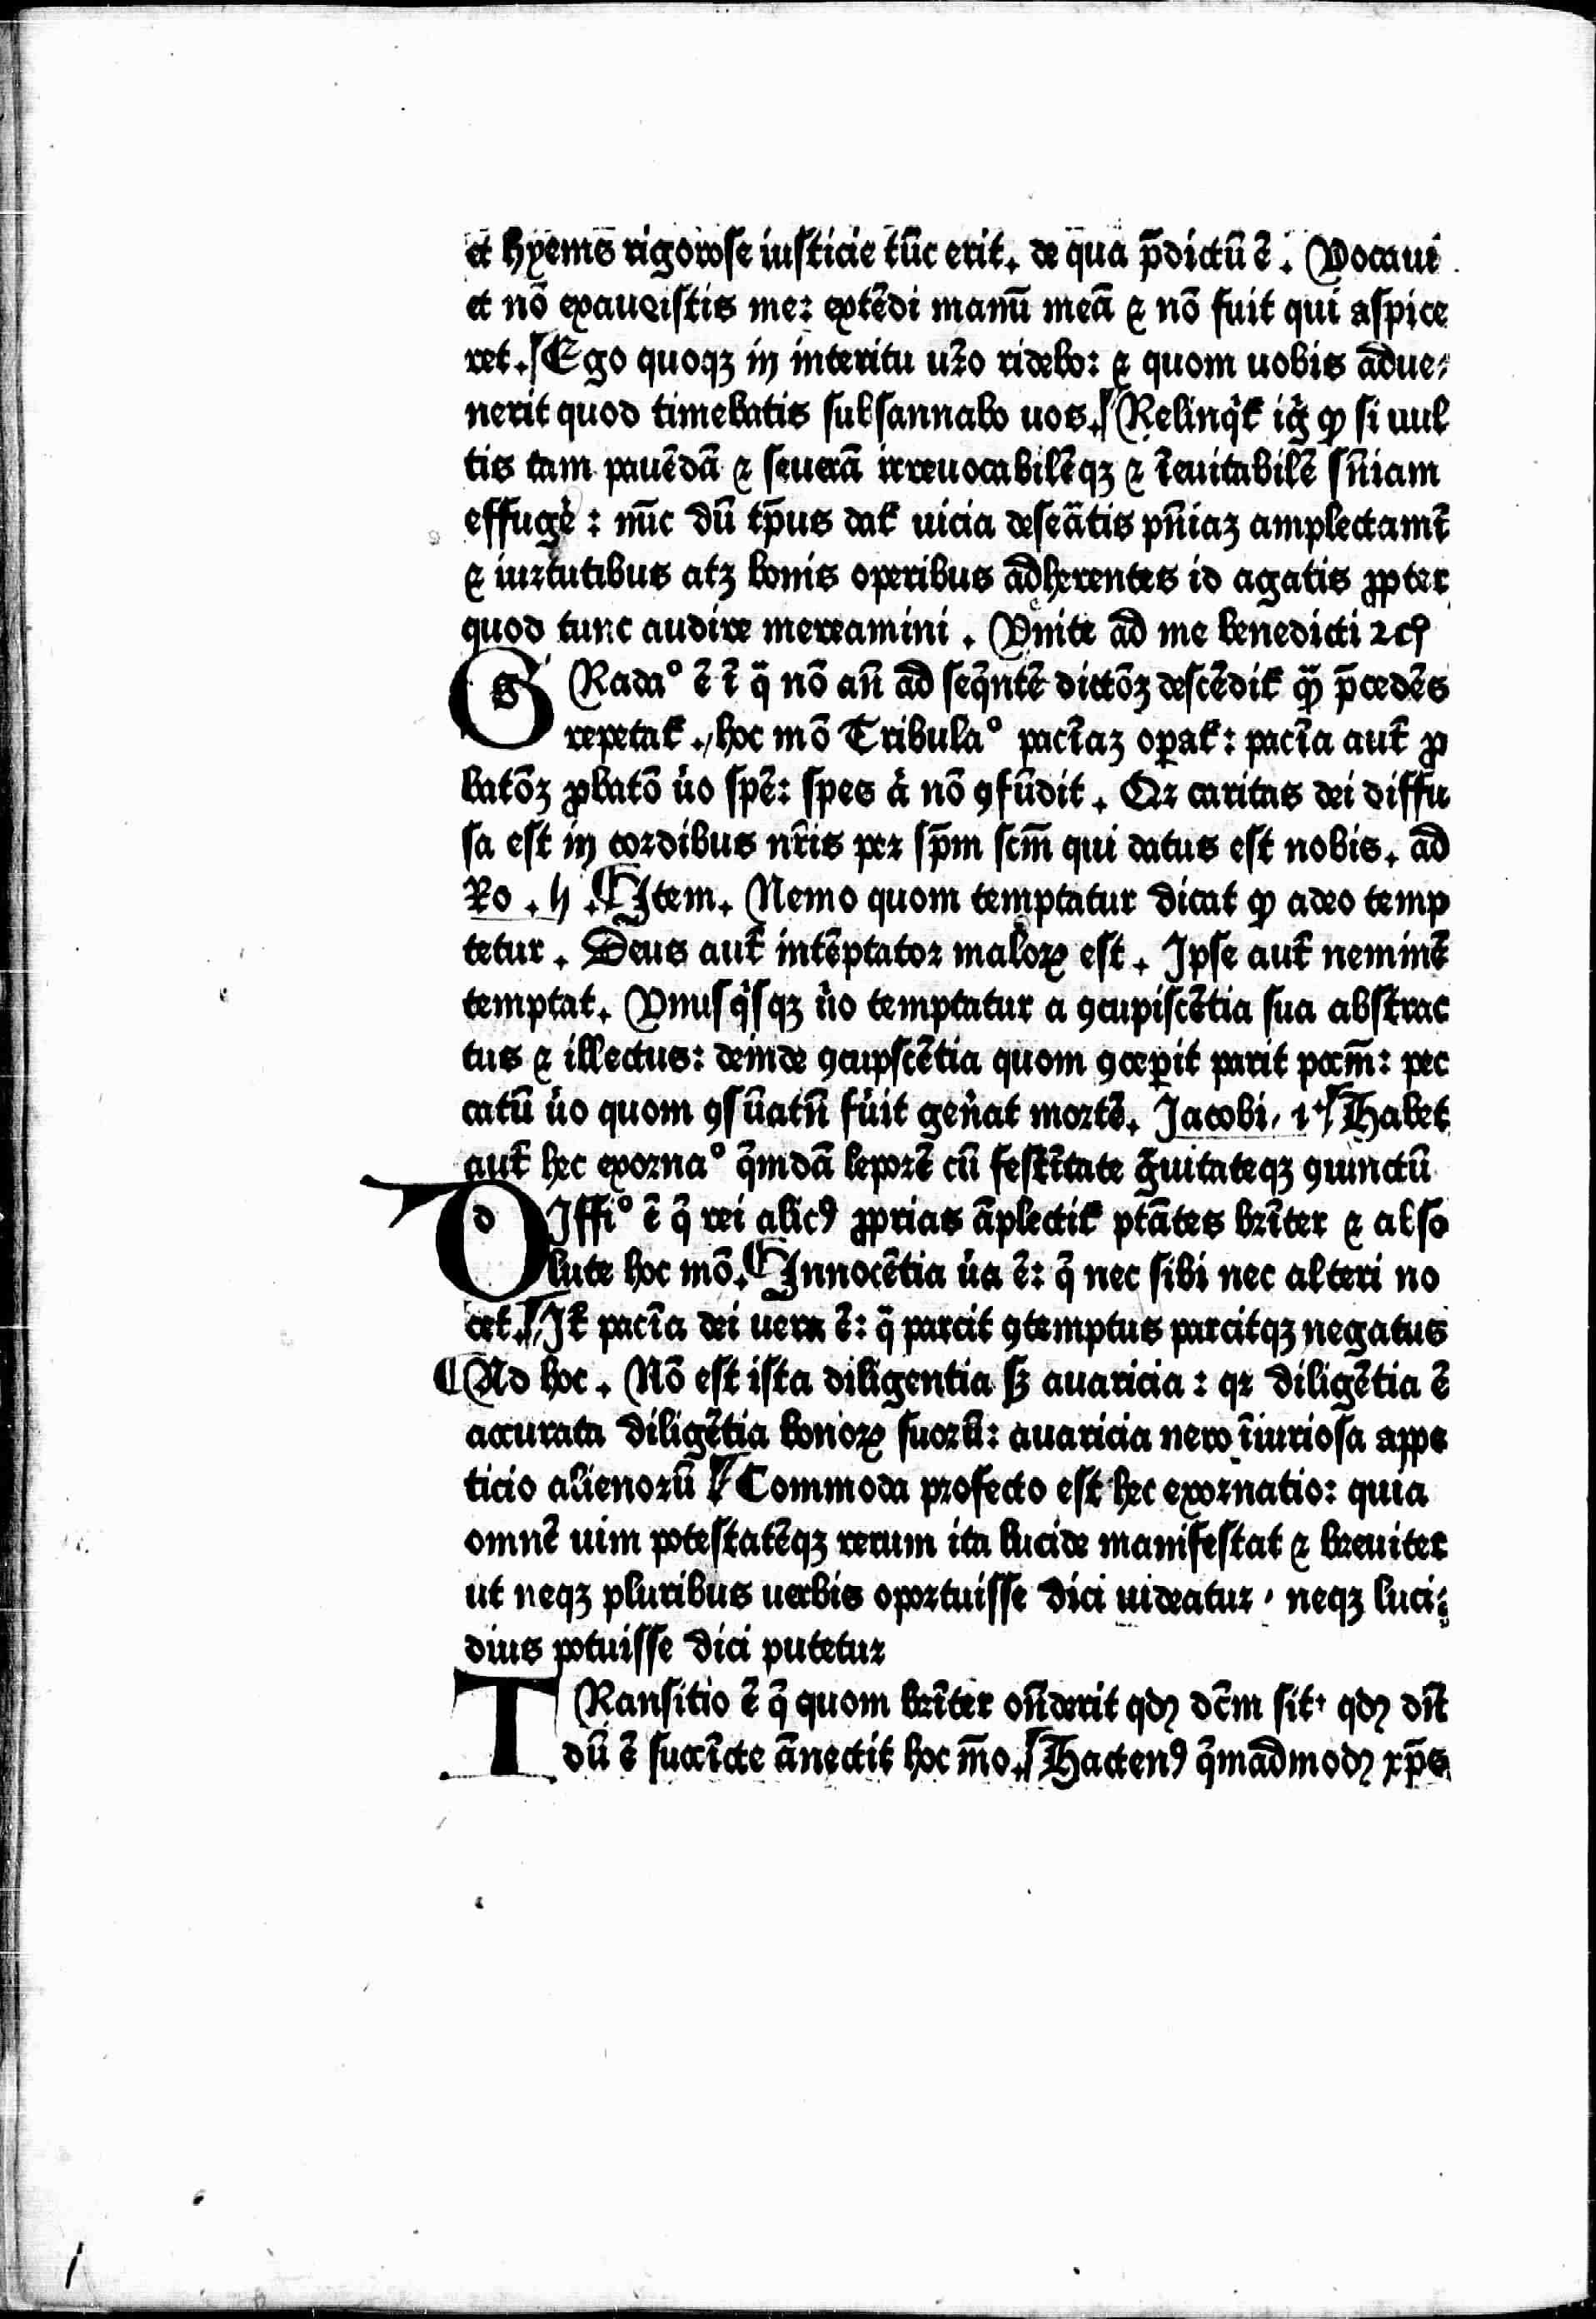 et hyems rigorose iusticie tūc erit. de qua p̄dictū ē. Vocaui
et nō exaudistis me: extēdi manū meā ⁊ nō fuit qui aspice
ret. Ego quoqꝫ in interitu uřo ridebo: ⁊ quom uobis adue⸗
nerit quod timebatis subsannabo uos. Relinqͥt̄ iḡ ꝙ si uul
tis tam pauēdā ⁊ seuerā irreuocabilēqꝫ ⁊ īeuitabilē sn̄iam
effugē: nūc dū tp̄us dat̄ uicia deseātis pn̄iaꝫ amplectamī
⁊ uirtutibus atꝫ bonis operibus adherentes id agatis ꝓpter
quod tunc audire mereamini. Vnite ad me benedicti ⁊cꝭ
GRada° ē ī q̄ nō an̄ ad seq̄ntē dictōꝫ descēdit̄ qᷓꝫ p̄cedēs
repetat̄. hoc mō Tribula° pacīaꝫ oꝑat̄: pacīa aut̄ ꝓ
batōꝫ ꝓbatō u̇o spē: spes a̍ nō ꝯfūdit. Qꝛ caritas dei diffu
sa est in cordibus nr̄is per sp̄m scm̄ qui datus est nobis. ad
Ro. h. Item. Nemo quom temptatur dicat ꝙ adeo temp
tetur. Deus aut̄ intēptator maloꝝ est. Ipse aut̄ neminē
temptat. Vnusqͥsqꝫ u̇o temptatur a ꝯcupiscētia sua abstrac
tus ⁊ illectus: deinde ꝯcupscētia quom ꝯceꝑit parit pccm̄: pec
catū u̇o quom ꝯsūatū fu̍it gen̍at mortē. Jacobi. i. Habet
aut̄ hec exorna° q̄mdā leporē cū festītate gᷓuitateqꝫ ꝯiunctū
DIffi° ē q̄ rei alicꝰ ꝓprias āplectit̄ ptātes brīter ⁊ abso
lute hoc mō. Innocētia u̍a ē: q̄ nec sibi nec alteri no
cet. It̄ pacīa dei uera ē: q̄ parcit ꝯtemptus parcitqꝫ negatus
Ad hoc. Nō est ista diligentia sꝫ auaricia: qꝛ diligētia ē
accurata diligētia bonoꝝ suorū: auaricia nero īiuriosa appe
ticio alienorū Commoda profecto est hec exornatio: quia
omnē uim potestatēqꝫ rerum ita lucide manifestat ⁊ breuiter
ut neqꝫ pluribus uerbis oportuisse dici uideatur, neqꝫ luci⸗
dius potuisse dici putetur
TRansitio ē q̄ quom brīter on̄derit qdꝫ dc̄m sit, qdꝫ dn̄t
dū ē succīcte ānectit hoc m̄o. Hactenꝰ q̄madmodꝫ xp̄s